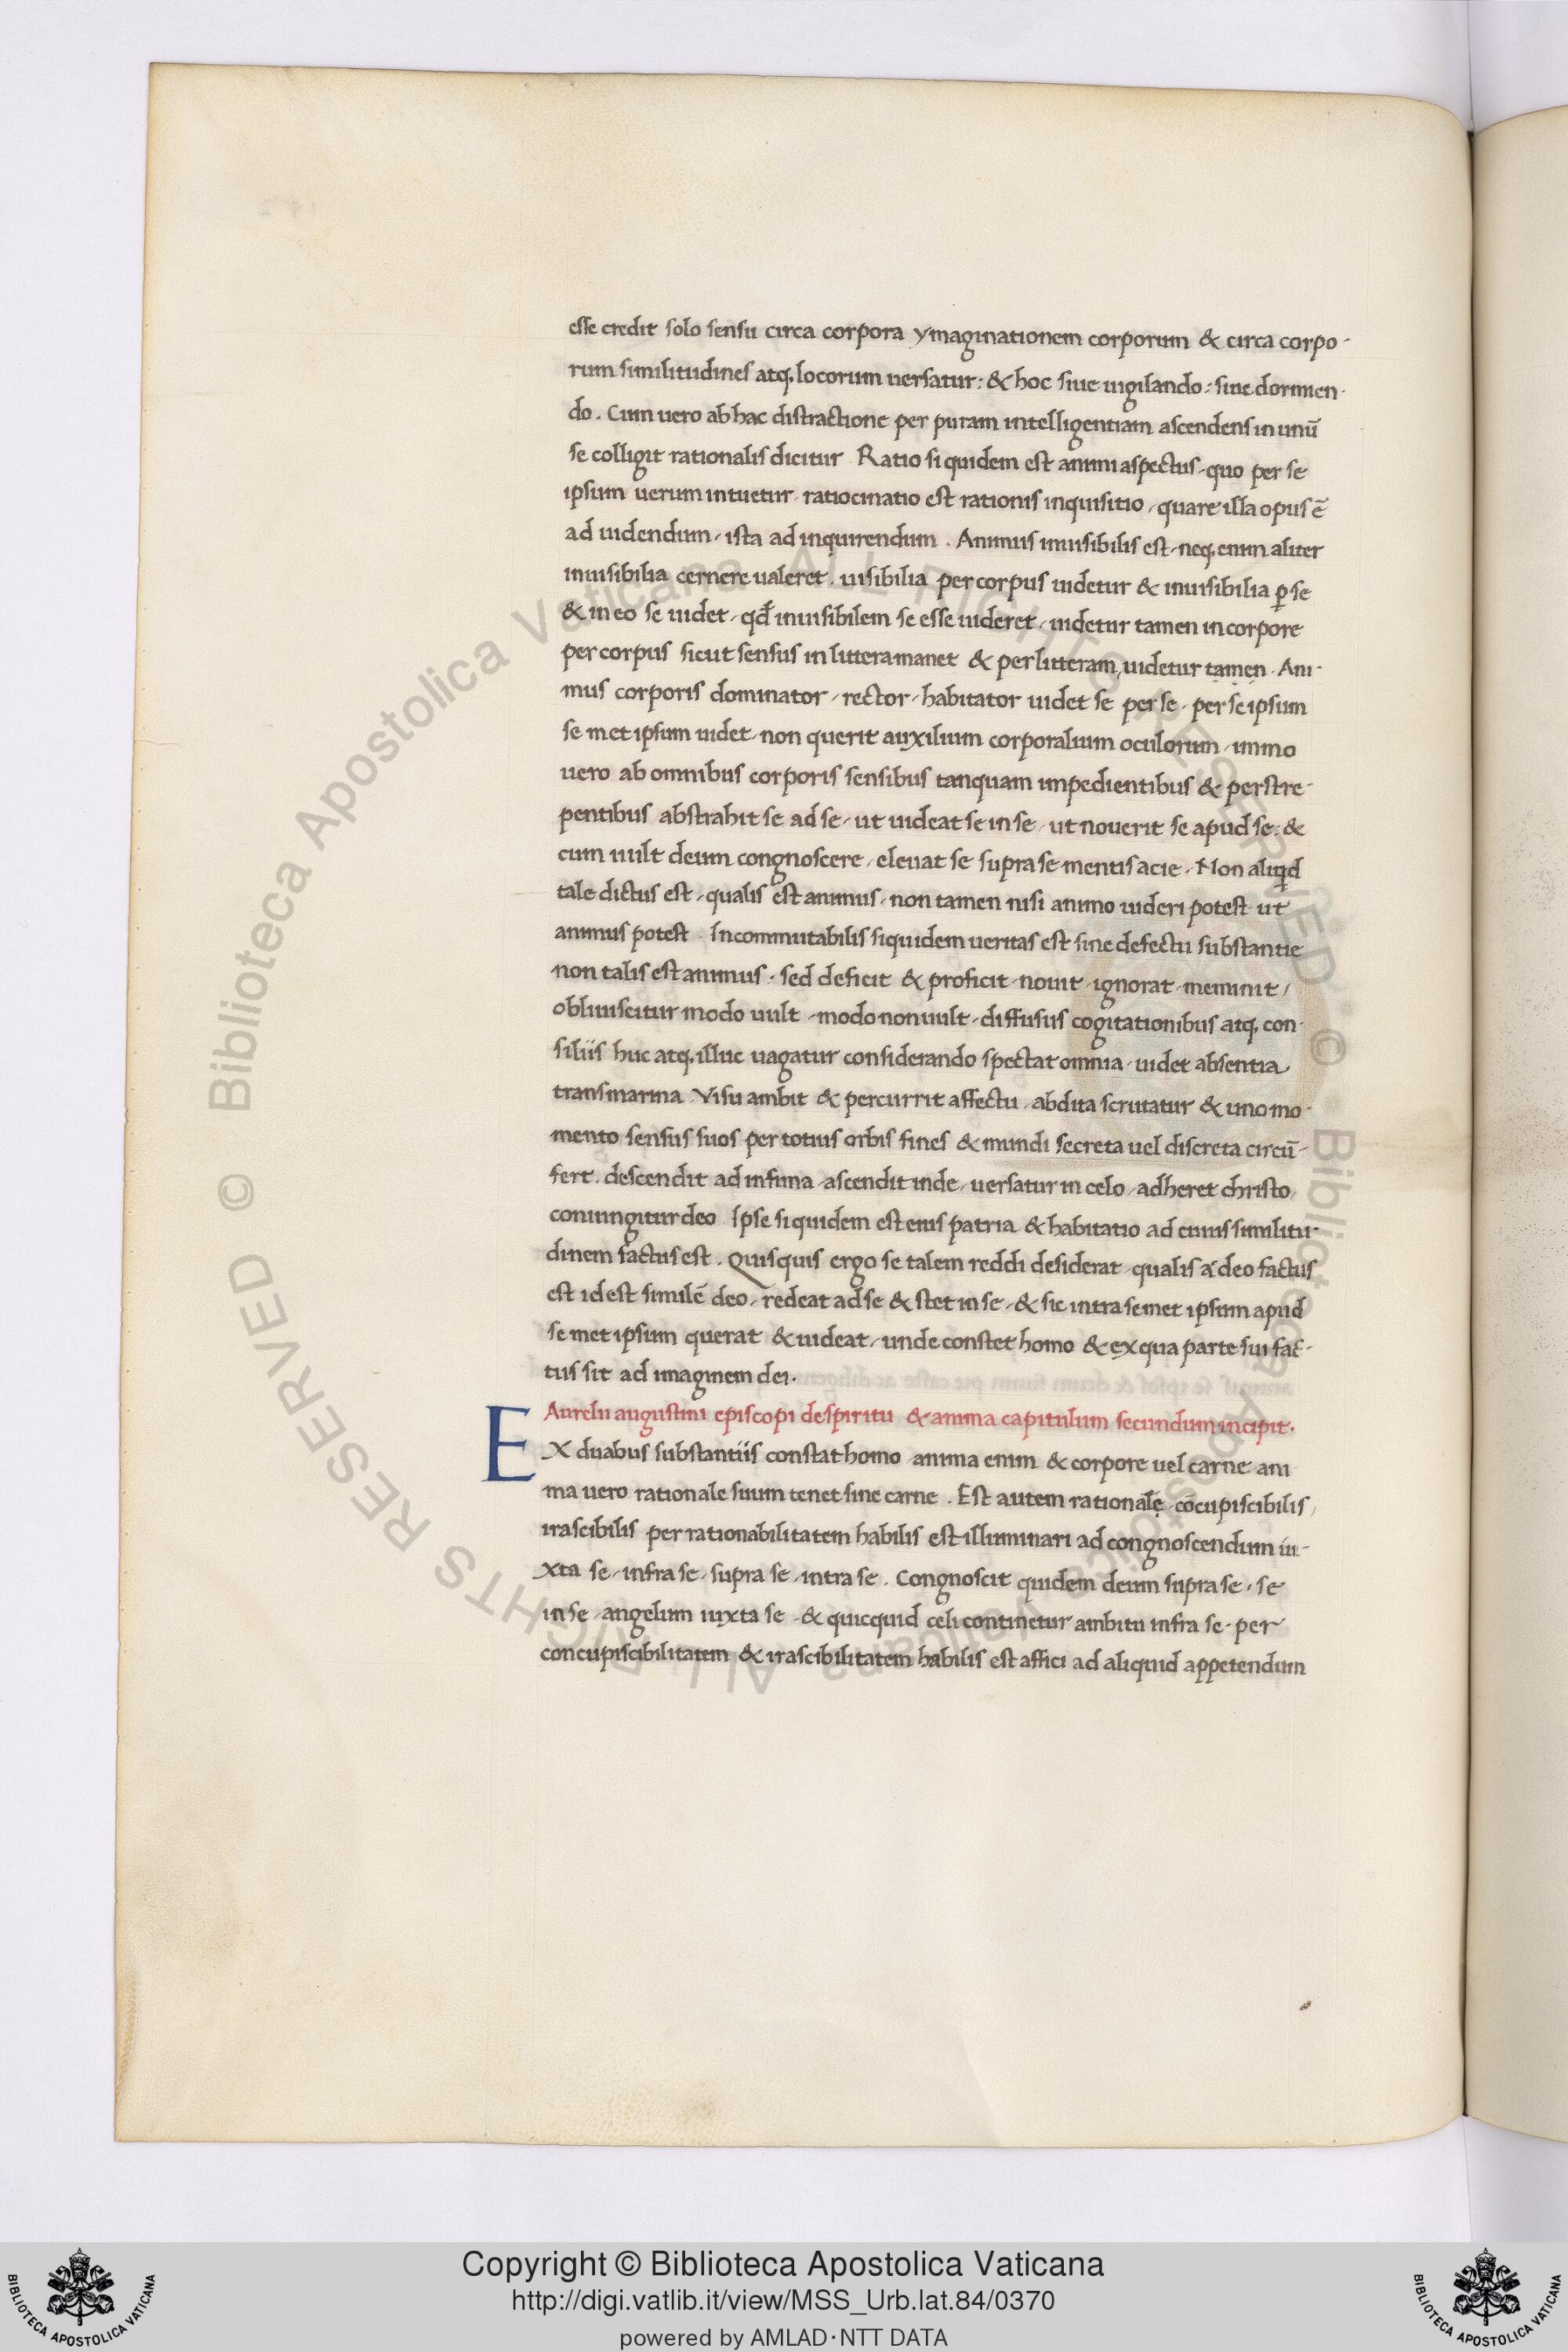 esse credit solo sensu circa corpora ymaginationem corporum & circa corpo-
rum similitudines atq; locorum uersatur: & hoc siue uigilando: siue dormien-
do. Cum uero ab hac distractione per puram intelligentiam ascendens in unū
se colligit rationalis dicitur. Ratio si quidem est animi aspectus, quo per se
ipsum uerum intuetur, ratiocinatio est rationis inquisitio, quare illa opus ē
ad uidendum, ista ad inquirendum. Animus inuisibilis est, neq; enim aliter
inuisibilia cernere ualeret. uisibilia per corpus uidetur & inuisibilia ꝑ se
& in eo se uidet, qđ inuisibilem se esse uideret, uidetur tamen in corpore
per corpus sicut sensus in littera manet & per litteram, uidetur tamen. Ani-
mus corporis dominator, rector, habitator uidet se per se, per se ipsum
se met ipsum uidet, non querit auxilium corporalium oculorum, immo
uero ab omnibus corporis sensibus tanquam impedientibus & perstre-
pentibus abstrahit se ad se, ut uideat se in se, ut nouerit se apud se: &
cum uult deum congnoscere, eleuat se supra se mentis acie. Non aliqd
tale dictus est, qualis est animus, non tamen nisi animo uideri potest ut
animus potest. Incommutabilis siquidem ueritas est sine defectu substantie
non talis est animus, sed deficit & proficit, nouit, ignorat, meminit,
obliuiscitur modo uult, modo non uult, diffusus cogitationibus atq; con-
siliis huc atq; illuc uagatur considerando spectat omnia, uidet absentia
transmarina. Visu ambit & percurrit affectu, abdita scrutatur & uno mo-
mento sensus suos per totius orbis fines & mundi secreta uel discreta circū-
fert. descendit ad infima, ascendit inde, uersatur in celo, adheret christo,
coniungitur deo. Ipse siquidem est eius patria & habitatio ad cuius similitu-
dinem factus est. Quisquis ergo se talem reddi desiderat, qualis a deo factus
est id est similē deo, redeat ad se & stet in se, & sic intra semet ipsum apud
se met ipsum querat & uideat, unde constet homo & ex qua parte sui fac-
tus sit ad imaginem dei.
Aurelii augustini episcopi de spiritu & anima capitulum secundum incipit.
EX duabus substantiis constat homo anima enim & corpore uel carne ani
ma uero rationale suum tenet sine carne. Est autem rationalę, cōcupiscibilis,
irascibilis per rationabilitatem habilis est illuminari ad congnoscendum iu-
xta se, infra se, supra se, intra se. Congnoscit quidem deum supra se, se
in se, angelum iuxta se, & quicquid celi continetur ambitu infra se, per
concupiscibilitatem & irascibilitatem habilis est affici ad aliquid appetendum
© Biblioteca Apostolica Vaticana ALL RIGHTS RESERVED © Biblioteca Apostolica Vaticana ALL RIGHTS RESERVED
Copyright © Biblioteca Apostolica Vaticana
http://digi.vatlib.it/view/MSS_Urb.lat.84/0370
powered by AMLAD·NTT DATA
BIBLIOTECA APOSTOLICA VATICANA
BIBLIOTECA APOSTOLICA VATICANA